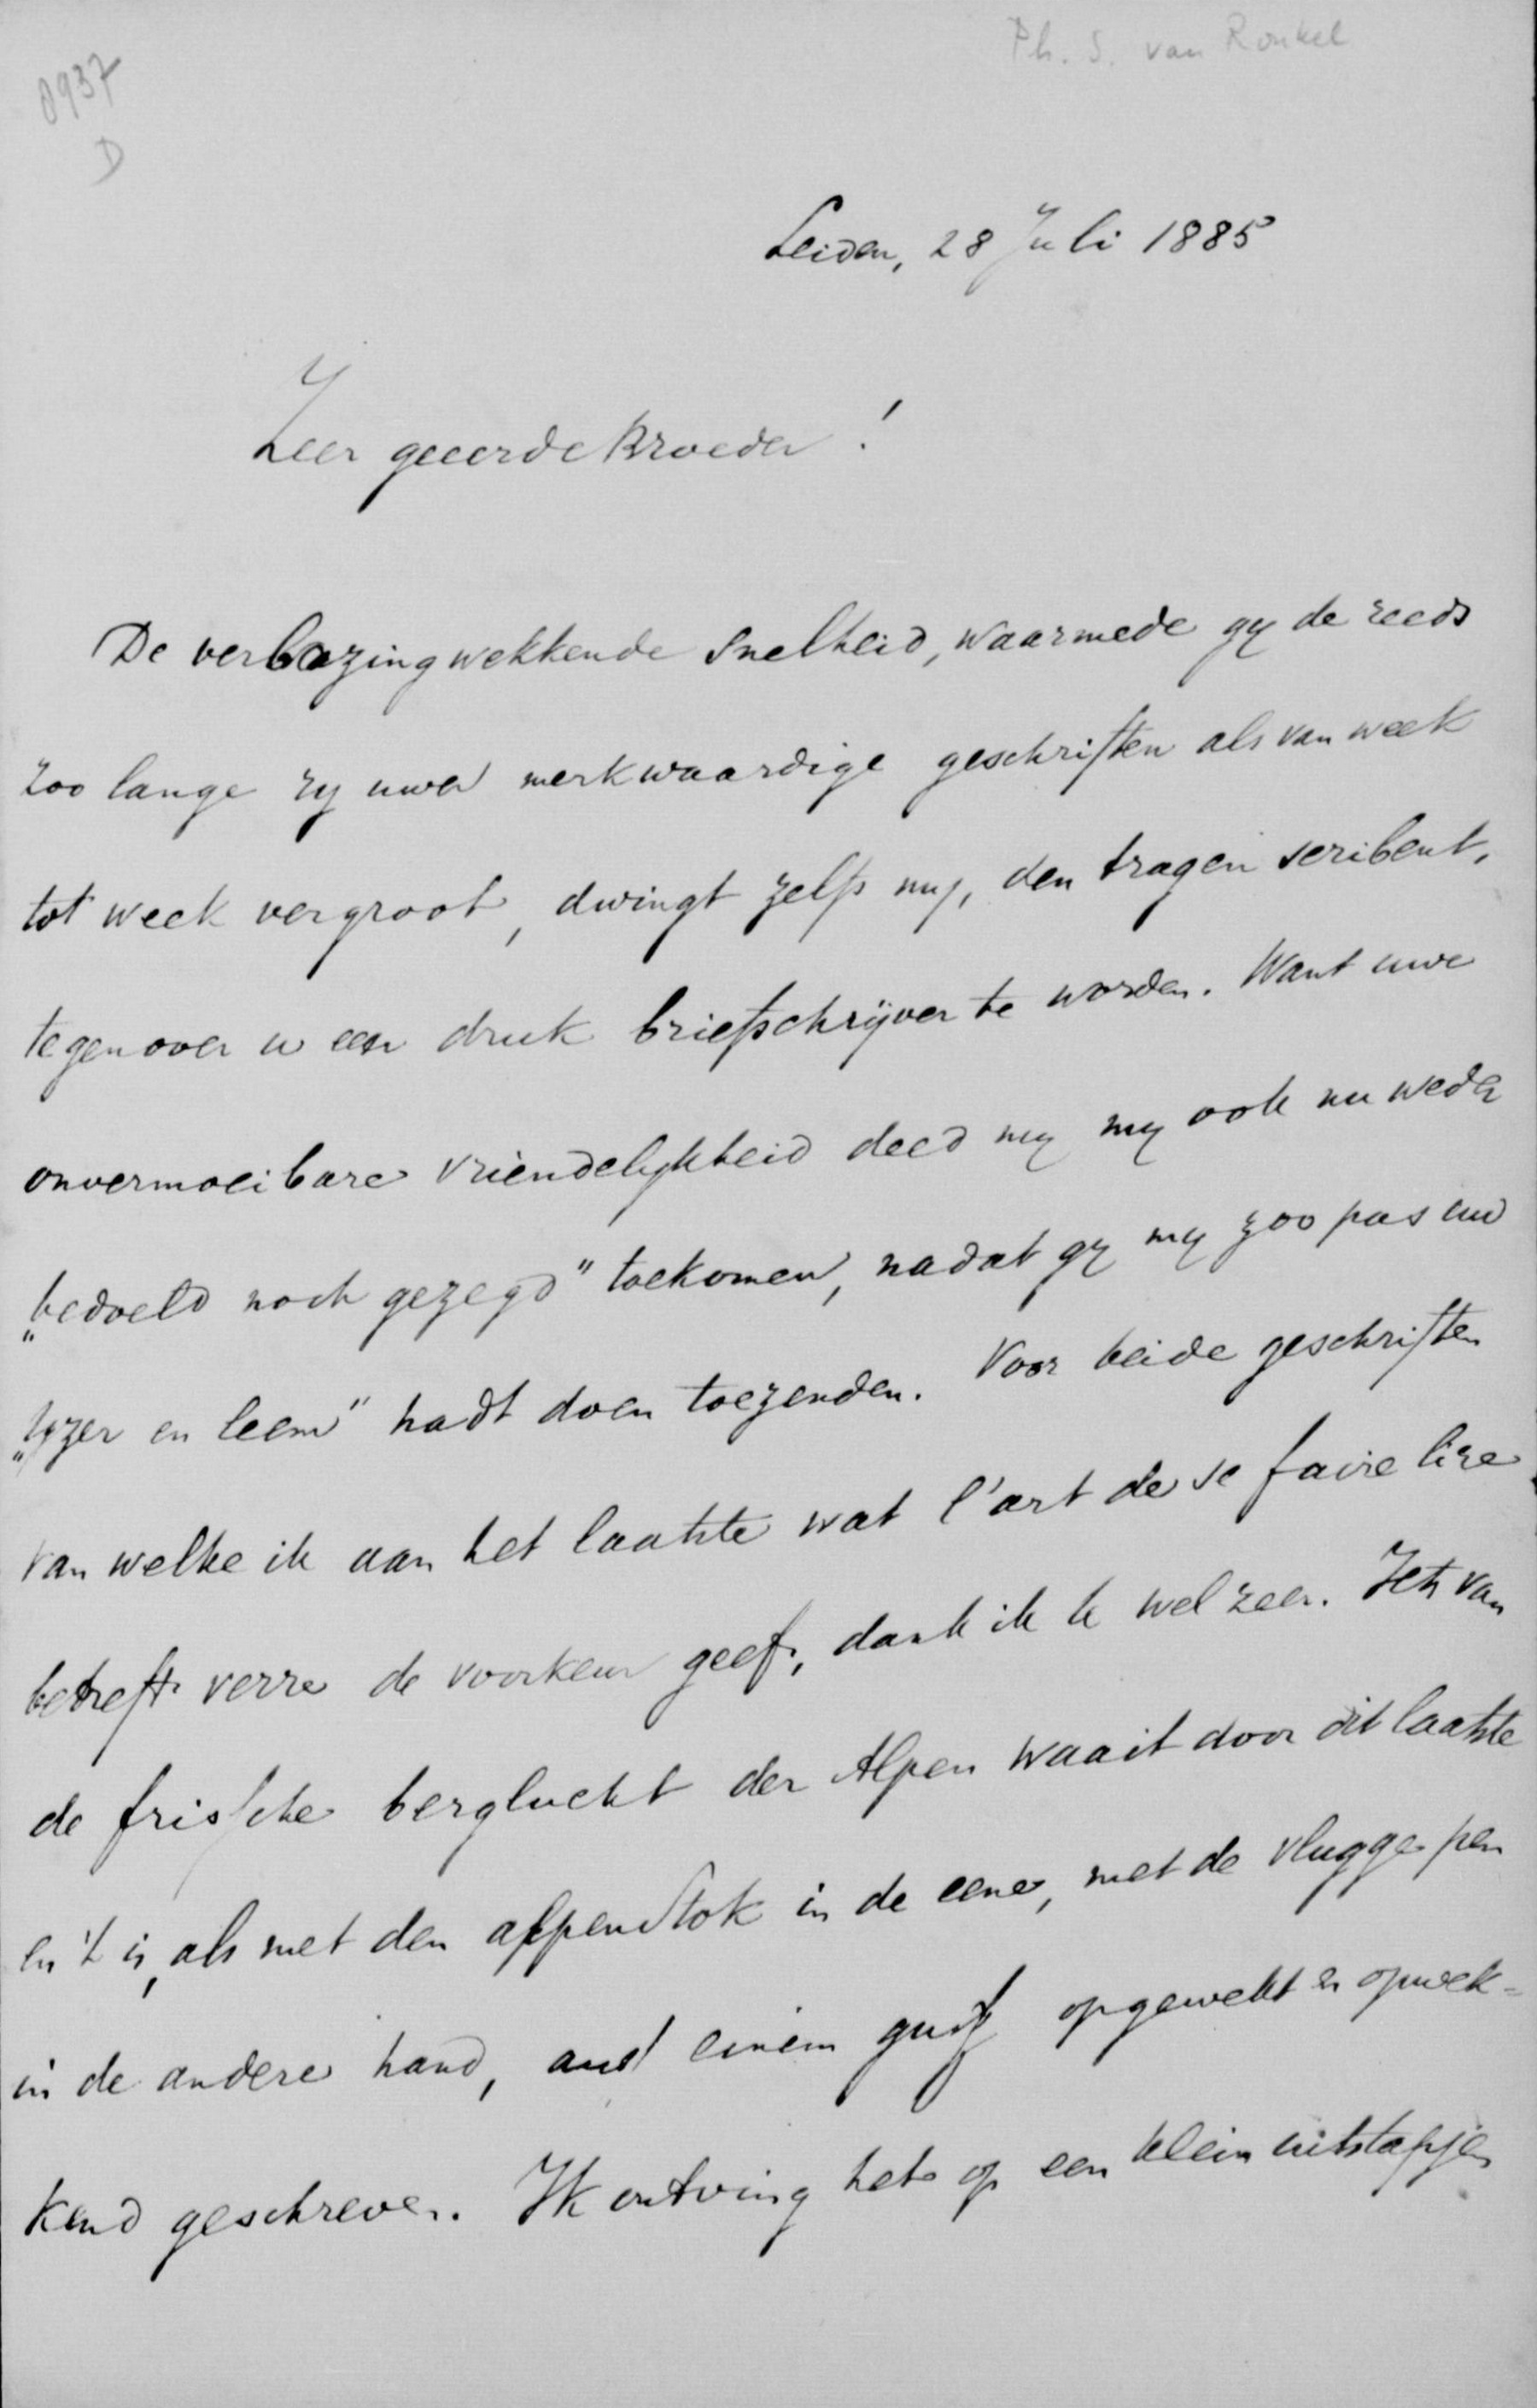 Ph. S. van Ronkel
0937
D
Leiden, 28 Juli 1885
Zeer geeerde Broeder!
De verbazingwekkende snelheid, waarmede gy de reeds
zoo lange ry uwer merkwaardige geschriften als van week
tot week vergroot, dwingt zelfs my, den tragen scribent,
tegenover u een druk briefschrijver te worden. Want uwe
onvermoeibare vriendelykheid deed my my ook nu weder
"bedoeld noch gezegd" toekomen, nadat gy my zoo pas uw
"Yzer en leem" hadt doen toezenden. Voor beide geschriften
van welke ik aan het laatste wat l'art de se faire lire
betreft verre de voorkeur geef, dank ik u wel zeer. Iets van
de frissche berglucht der Alpen waait door dit laatste
en 't is, als met den alpenstok in de eene, met de vlugge pen
in de andere hand, aus einem guss opgewekt en opwek=
kend geschreven. Ik ontving het op een klein uitstapje